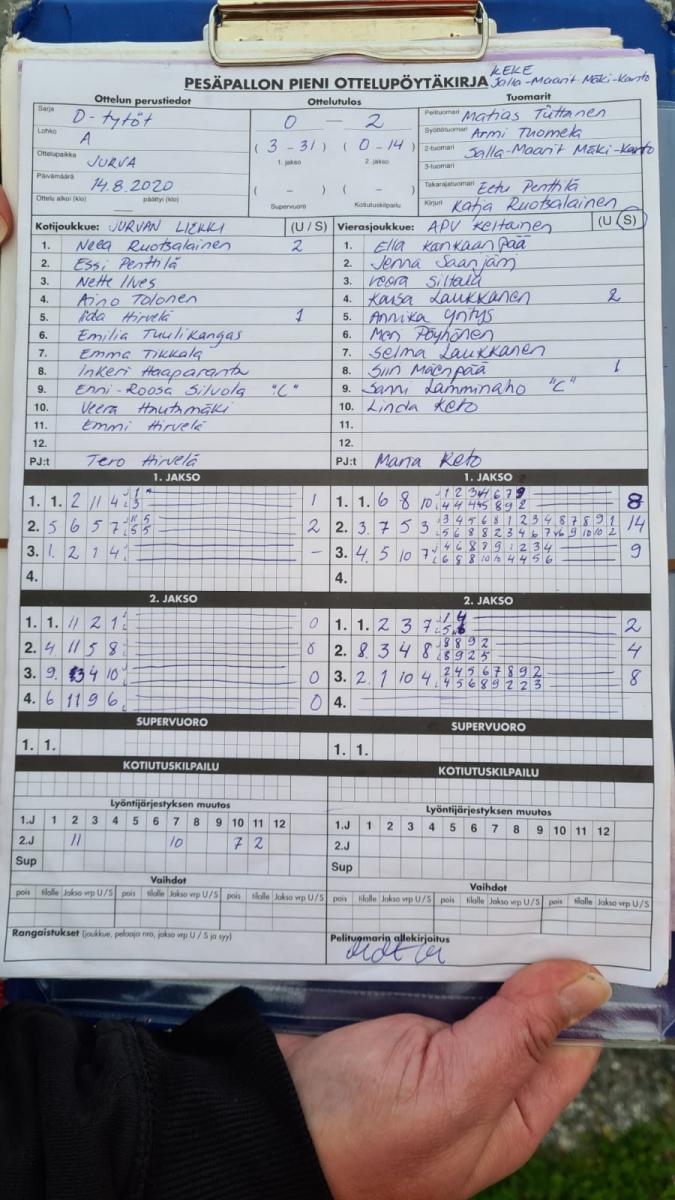 KEKE
PESÄPALLON PIENI OTTELUPÖYTÄKIRJA Salla-Maarit Mäki-Kanto
Ottelun perustiedot Ottelutulos Tuomarit
Sarja D-tytöt
Lohko A
Ottelupaikka JURVA
Päivämäärä 14.8.2020
Ottelu alkoi (klo) päättyi (klo)
0 – 2
(3 - 31) (0 - 14)
1. jakso 2. jakso
( - ) ( - )
Supervuoro Kotiutuskilpailu
Pelituomari Matias Tuttanen
Syöttötuomari Armi Tuomela
2-tuomari Salla-Maarit Mäki-Kanto
3-tuomari
Takarajatuomari Eetu Penttilä
Kirjuri Katja Ruotsalainen
Kotijoukkue: JURVAN LIEKKI (U / S)
1. Neea Ruotsalainen 2
2. Essi Penttilä
3. Nette Ilves
4. Aino Tolonen
5. Iida Hirvelä 1
6. Emilia Tuulikangas
7. Emma Tikkala
8. Inkeri Haaparanta
9. Enni-Roosa Silvola "C"
10. Veera Hautamäki
11. Emmi Hirvelä
12.
PJ:t Tero Hirvelä
Vierasjoukkue: APV Keltainen (U / S)
1. Ella Kankaanpää
2. Jenna Saarijärvi
3. Veera Siltala
4. Kaisa Laukkanen 2
5. Annika Yritys
6. Meri Pöyhönen
7. Selma Laukkanen
8. Siiri Mäenpää 1
9. Sanni Lamminaho "C"
10. Linda Keto
11.
12.
PJ:t Maria Keto
1. JAKSO
1. 1. 2 11 4 1 3 1
2. 5 6 5 7 11 5 5 5 2
3. 1. 2 1 4 –
4.
1. JAKSO
1. 1. 6 8 10 1 2 3 4 6 7 9 8
4 4 4 5 8 9 2
2. 3. 7 5 3 3 4 5 6 8 1 2 3 4 8 7 8 9 1 14
5 6 8 8 2 3 4 6 7 6 9 10 10 2
3. 4. 5 10 7 4 6 8 8 9 1 2 3 4 9
6 8 8 10 10 4 4 5 6
4.
2. JAKSO
1. 1. 11 2 1 0
2. 4 11 5 8 0
3. 9. 3 4 10 0
4. 6 11 9 6 0
2. JAKSO
1. 1. 2 3 7 1 4 2
5 6
2. 8. 3 4 8 8 8 9 2 4
8 9 2 5
3. 2. 1 10 4 2 4 5 6 7 8 9 2 8
4 5 6 8 9 2 2 3
4.
SUPERVUORO
1. 1.
SUPERVUORO
1. 1.
KOTIUTUSKILPAILU
KOTIUTUSKILPAILU
Lyöntijärjestyksen muutos
1.J 1 2 3 4 5 6 7 8 9 10 11 12
2.J 11 10 7 2
Sup
Lyöntijärjestyksen muutos
1.J 1 2 3 4 5 6 7 8 9 10 11 12
2.J
Sup
Vaihdot
pois tilalle Jakso vrp U / S pois tilalle Jakso vrp U / S pois tilalle Jakso vrp U / S
Vaihdot
pois tilalle Jakso vrp U / S pois tilalle Jakso vrp U / S pois tilalle Jakso vrp U / S
Rangaistukset (joukkue, pelaaja nro, jakso vrp U / S ja syy)
Pelituomarin allekirjoitus